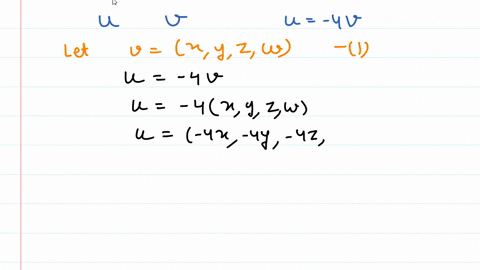 u v u = -4v
Let v = (x, y, z, w) -(1)
u = -4v
u = -4(x, y, z, w)
u = (-4x, -4y, -4z,